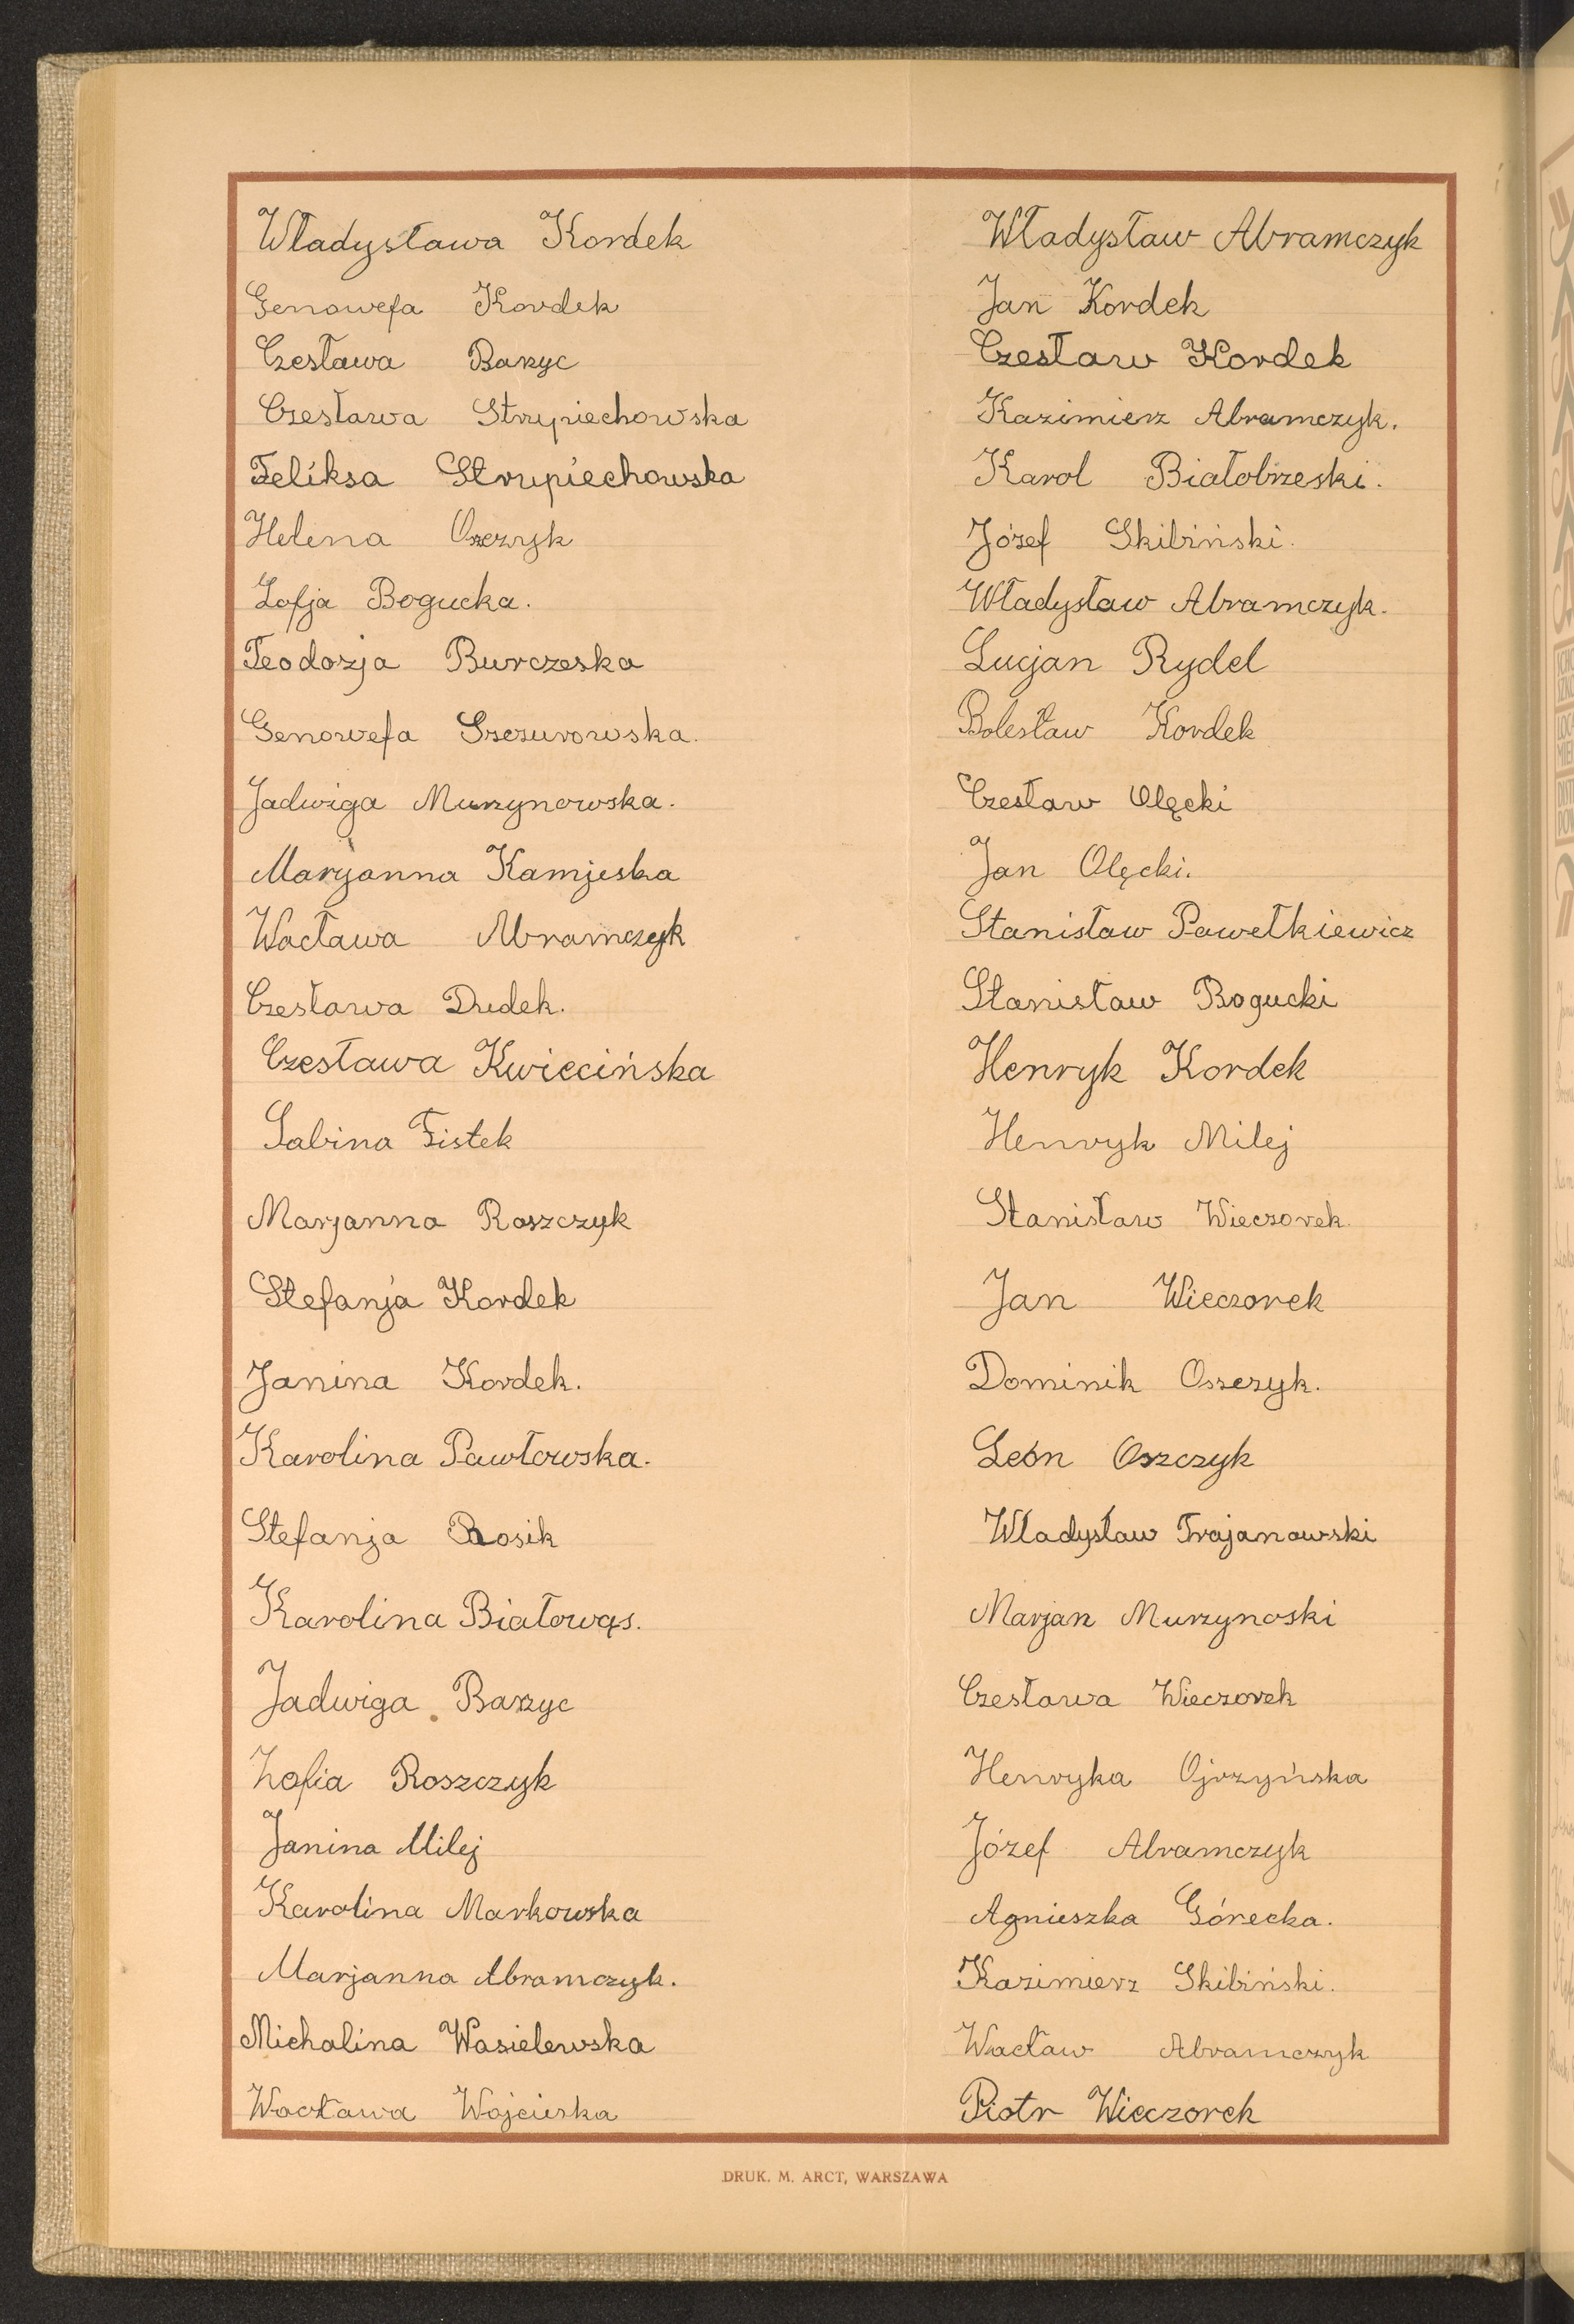 Władysława Kordek
Genowefa Kordek
Czesława Barzyc
Czesława Strupiechowska
Feliksa Strupiechowska
Helena Oszczyk
Zofja Bogucka.
Teodozja Burczeska
Genowefa Szczurowska.
Jadwiga Murzynowska.
Marjanna Kamjeska
Wacława Abramczyk
Czesława Dudek.
Czesława Kwiecińska
Sabina Fistek
Marjanna Roszczyk
Stefanja Kordek
Janina Kordek.
Karolina Pawłowska.
Stefanja Rosik
Karolina Białowąs.
Jadwiga Barzyc
Zofia Roszczyk
Janina Milej
Karolina Markowska
Marjanna Abramczyk.
Michalina Wasielewska
Wacława Wojcieska
Władysław Abramczyk
Jan Kordek
Czesław Kordek
Kazimierz Abramczyk.
Karol Białobrzeski.
Józef Skibiński.
Władysław Abramczyk.
Lucjan Rydel
Bolesław Kordek
Czesław Olęcki
Jan Olęcki.
Stanisław Pawełkiewicz
Stanisław Bogucki
Henryk Kordek
Henryk Milej
Stanisław Wieczorek.
Jan Wieczorek
Dominik Oszczyk.
León Oszczyk
Władysław Trajanowski
Marjan Murzynoski
Czesława Wieczorek
Henryka Ojrzyńska
Józef Abramczyk
Agnieszka Górecka.
Kazimierz Skibiński.
Wacław Abramczyk
Piotr Wieczorek
DRUK. M. ARCT, WARSZAWA